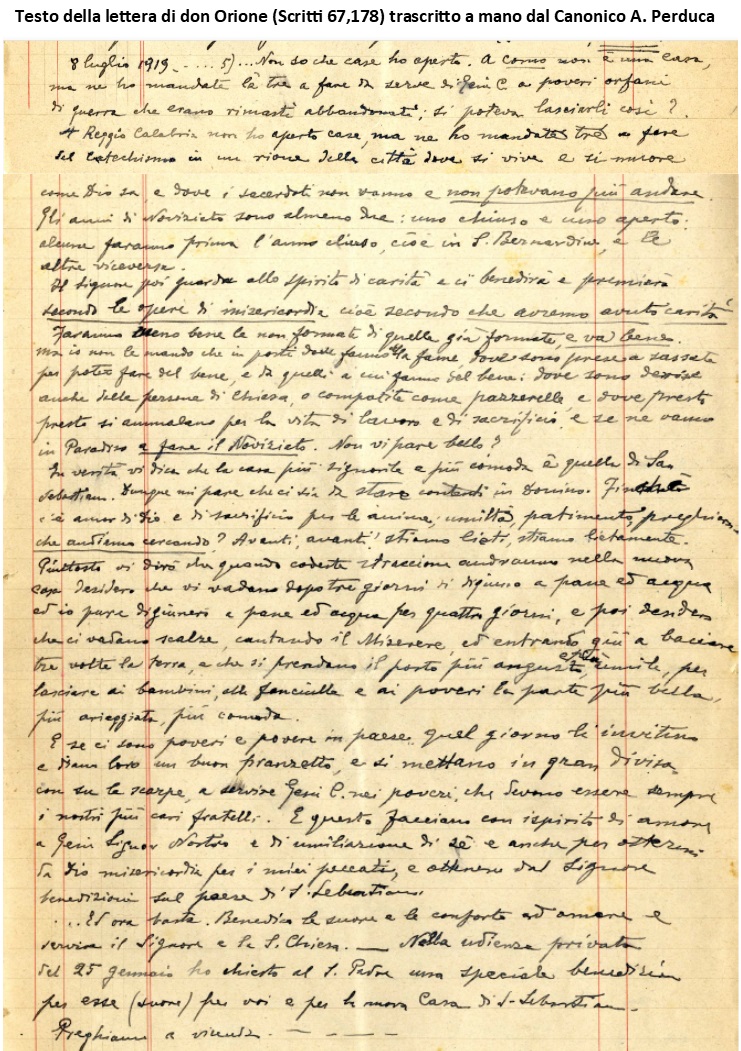 Testo della lettera di don Orione (Scritti 67,178) trascritto a mano dal Canonico A. Perduca
8 luglio 1919 ..... 5) ... Non so che case ho aperto. A Como non è una casa,
ma ne ho mandate là tre a fare da serve di Gesù C. a poveri orfani
di guerra che erano rimasti abbandonati; si poteva lasciarli così?
A Reggio Calabria non ho aperto case, ma ne ho mandate tre a fare
del Catechismo in un rione della città dove si vive e si muore
come Dio sa, e dove i sacerdoti non vanno e non potevano più andare.
Gli anni di Noviziato sono almeno due: uno chiuso e uno aperto:
alcune faranno prima l'anno chiuso, cioè in S. Bernardino, e le
altre viceversa.
Il Signore poi guarda allo spirito di carità e ci benedirà e premierà
secondo le opere di misericordia cioè secondo che avremo avuto carità
Faranno meno bene le non formate di quelle già formate, e va bene.
ma io non le mando che in posti dove fanno la fame, dove sono prese a sassate
per poter fare del bene, e da quelli a cui fanno del bene: dove sono derise
anche dalle persone di Chiesa, o compatite come pazzerelle, e dove presto
presto si ammalano per la vita di lavoro e di sacrificio, e se ne vanno
in Paradiso a fare il Noviziato. Non vi pare bello?
In verità vi dico che la casa più signorile e più comoda è quella di San
Sebastiano. Dunque mi pare che ci sia da stare contenti in Domino.
c'è amor di Dio e di sacrificio per le anime, umiltà, patimento, preghiera
che andiamo cercando? Avanti, avanti! stiamo lieti, stiamo lietamente.
Piuttosto vi dirò che quando codeste straccione andranno nella nuova
casa desidero che vi vadano dopo tre giorni di digiuno a pane ed acqua
ed io pure digiunerò a pane ed acqua per quattro giorni, e poi desidero
che ci vadano scalze, cantando il Miserere, ed entrando giù a baciare
tre volte la terra, e che si prendano il posto più angusto, e più umile, per
lasciare ai bambini, alle fanciulle e ai poveri la parte più bella,
più arieggiata, più comoda.
E se ci sono poveri e povere in paese quel giorno li invitino
e diano loro un buon pranzetto, e si mettano in gran divisa,
con su le scarpe, a servire Gesù C. nei poveri, che devono essere sempre
i nostri più cari fratelli. E questo facciano con ispirito di amore
a Gesù Signor Nostro e di umiliazione di sè e anche per ottenermi
da Dio misericordia per i miei peccati, e ottenere dal Signore
benedizioni sul paese di S. Sebastiano.
... Ed ora basta. Benedico le suore e le conforto ad amare e
servire il Signore e la S. Chiesa. — Nella udienza privata
del 25 gennaio ho chiesto al S. Padre una speciale benedizione
per esse (suore) per voi e per la nuova Casa di S. Sebastiano.
Preghiamo a vicenda. — — — —